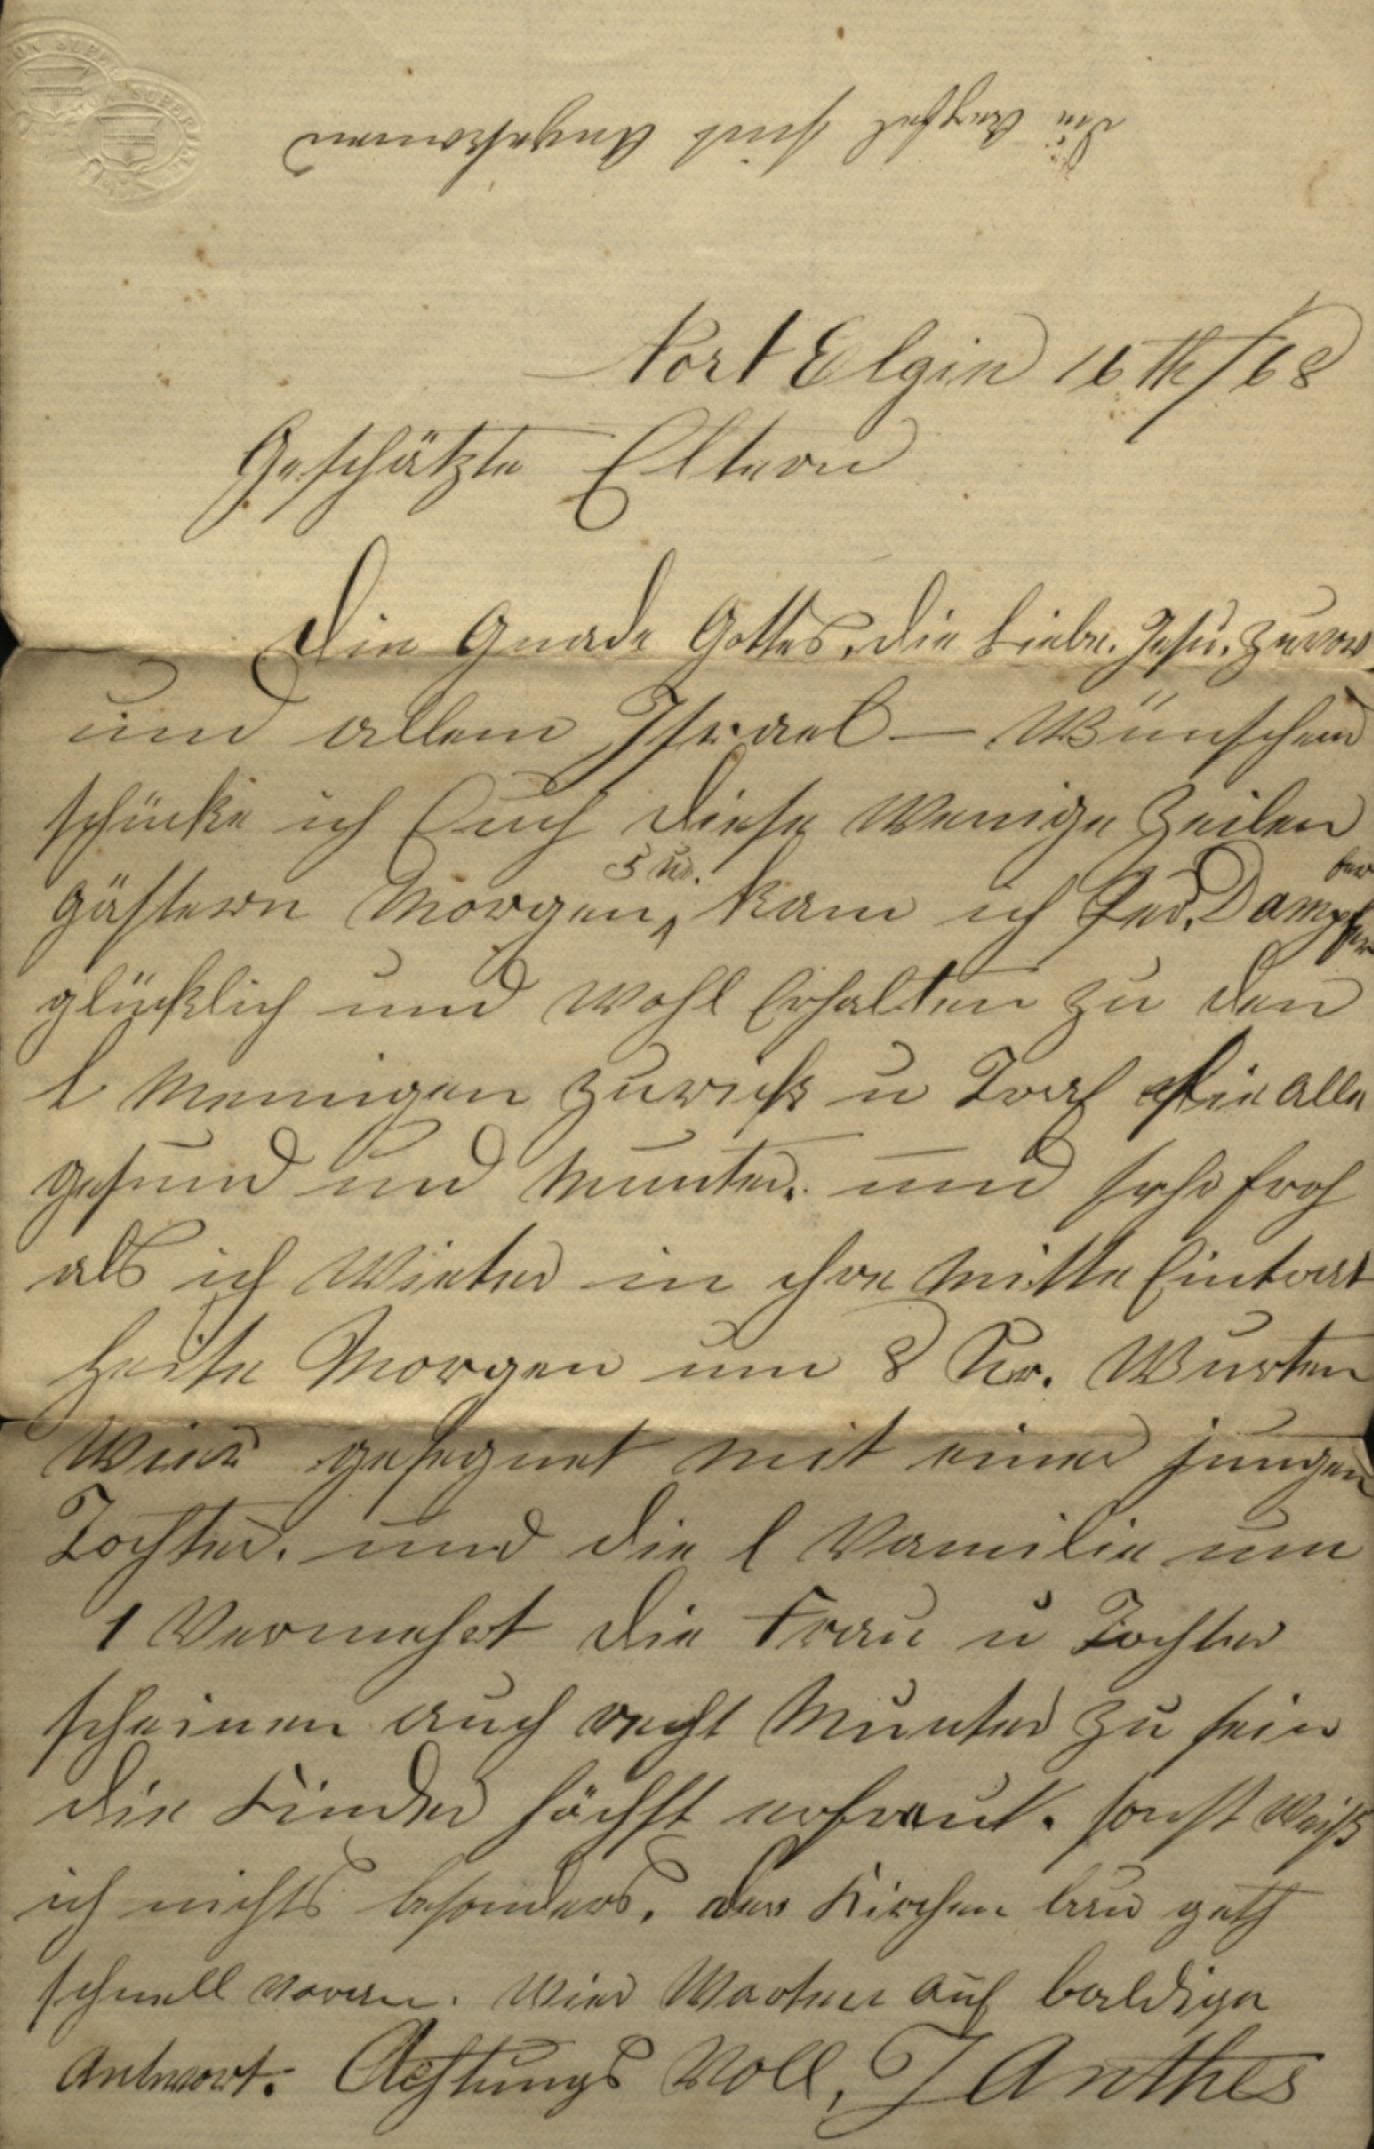 die Aepfel sind Angekomen
Nort Elgin 16th/68
Geschätzte Eltern
Die Gnade Gottes, die Liebe Jesu, zuvor
und allem Israel — Wünschend
schücke ich Euch diese Wenige Zeilen
gästern Morgen 5 Ur. kam ich per Dampfer
glücklich und wohl Erhalten zu den
l Meinigen zurick u Traf Sie alle
gesund und Munter. und sehr froh
als ich Wieter in ihre Mitte Eintrat
Heite Morgen um 8 Ur. Wurten
Wier gesegnet mit einer jungen
Tochter. und die l Vamilie um
1 Vermehrt die Frau u Tochter
scheinen auch recht Munter zu sein
die Kinder höchst erfraut. sonst Weiß
ich nichts besonders. der Kirchen bau geth
schnell voran. Wier Warten auf baldige
Antwort. Achtungs Voll, J Anthes